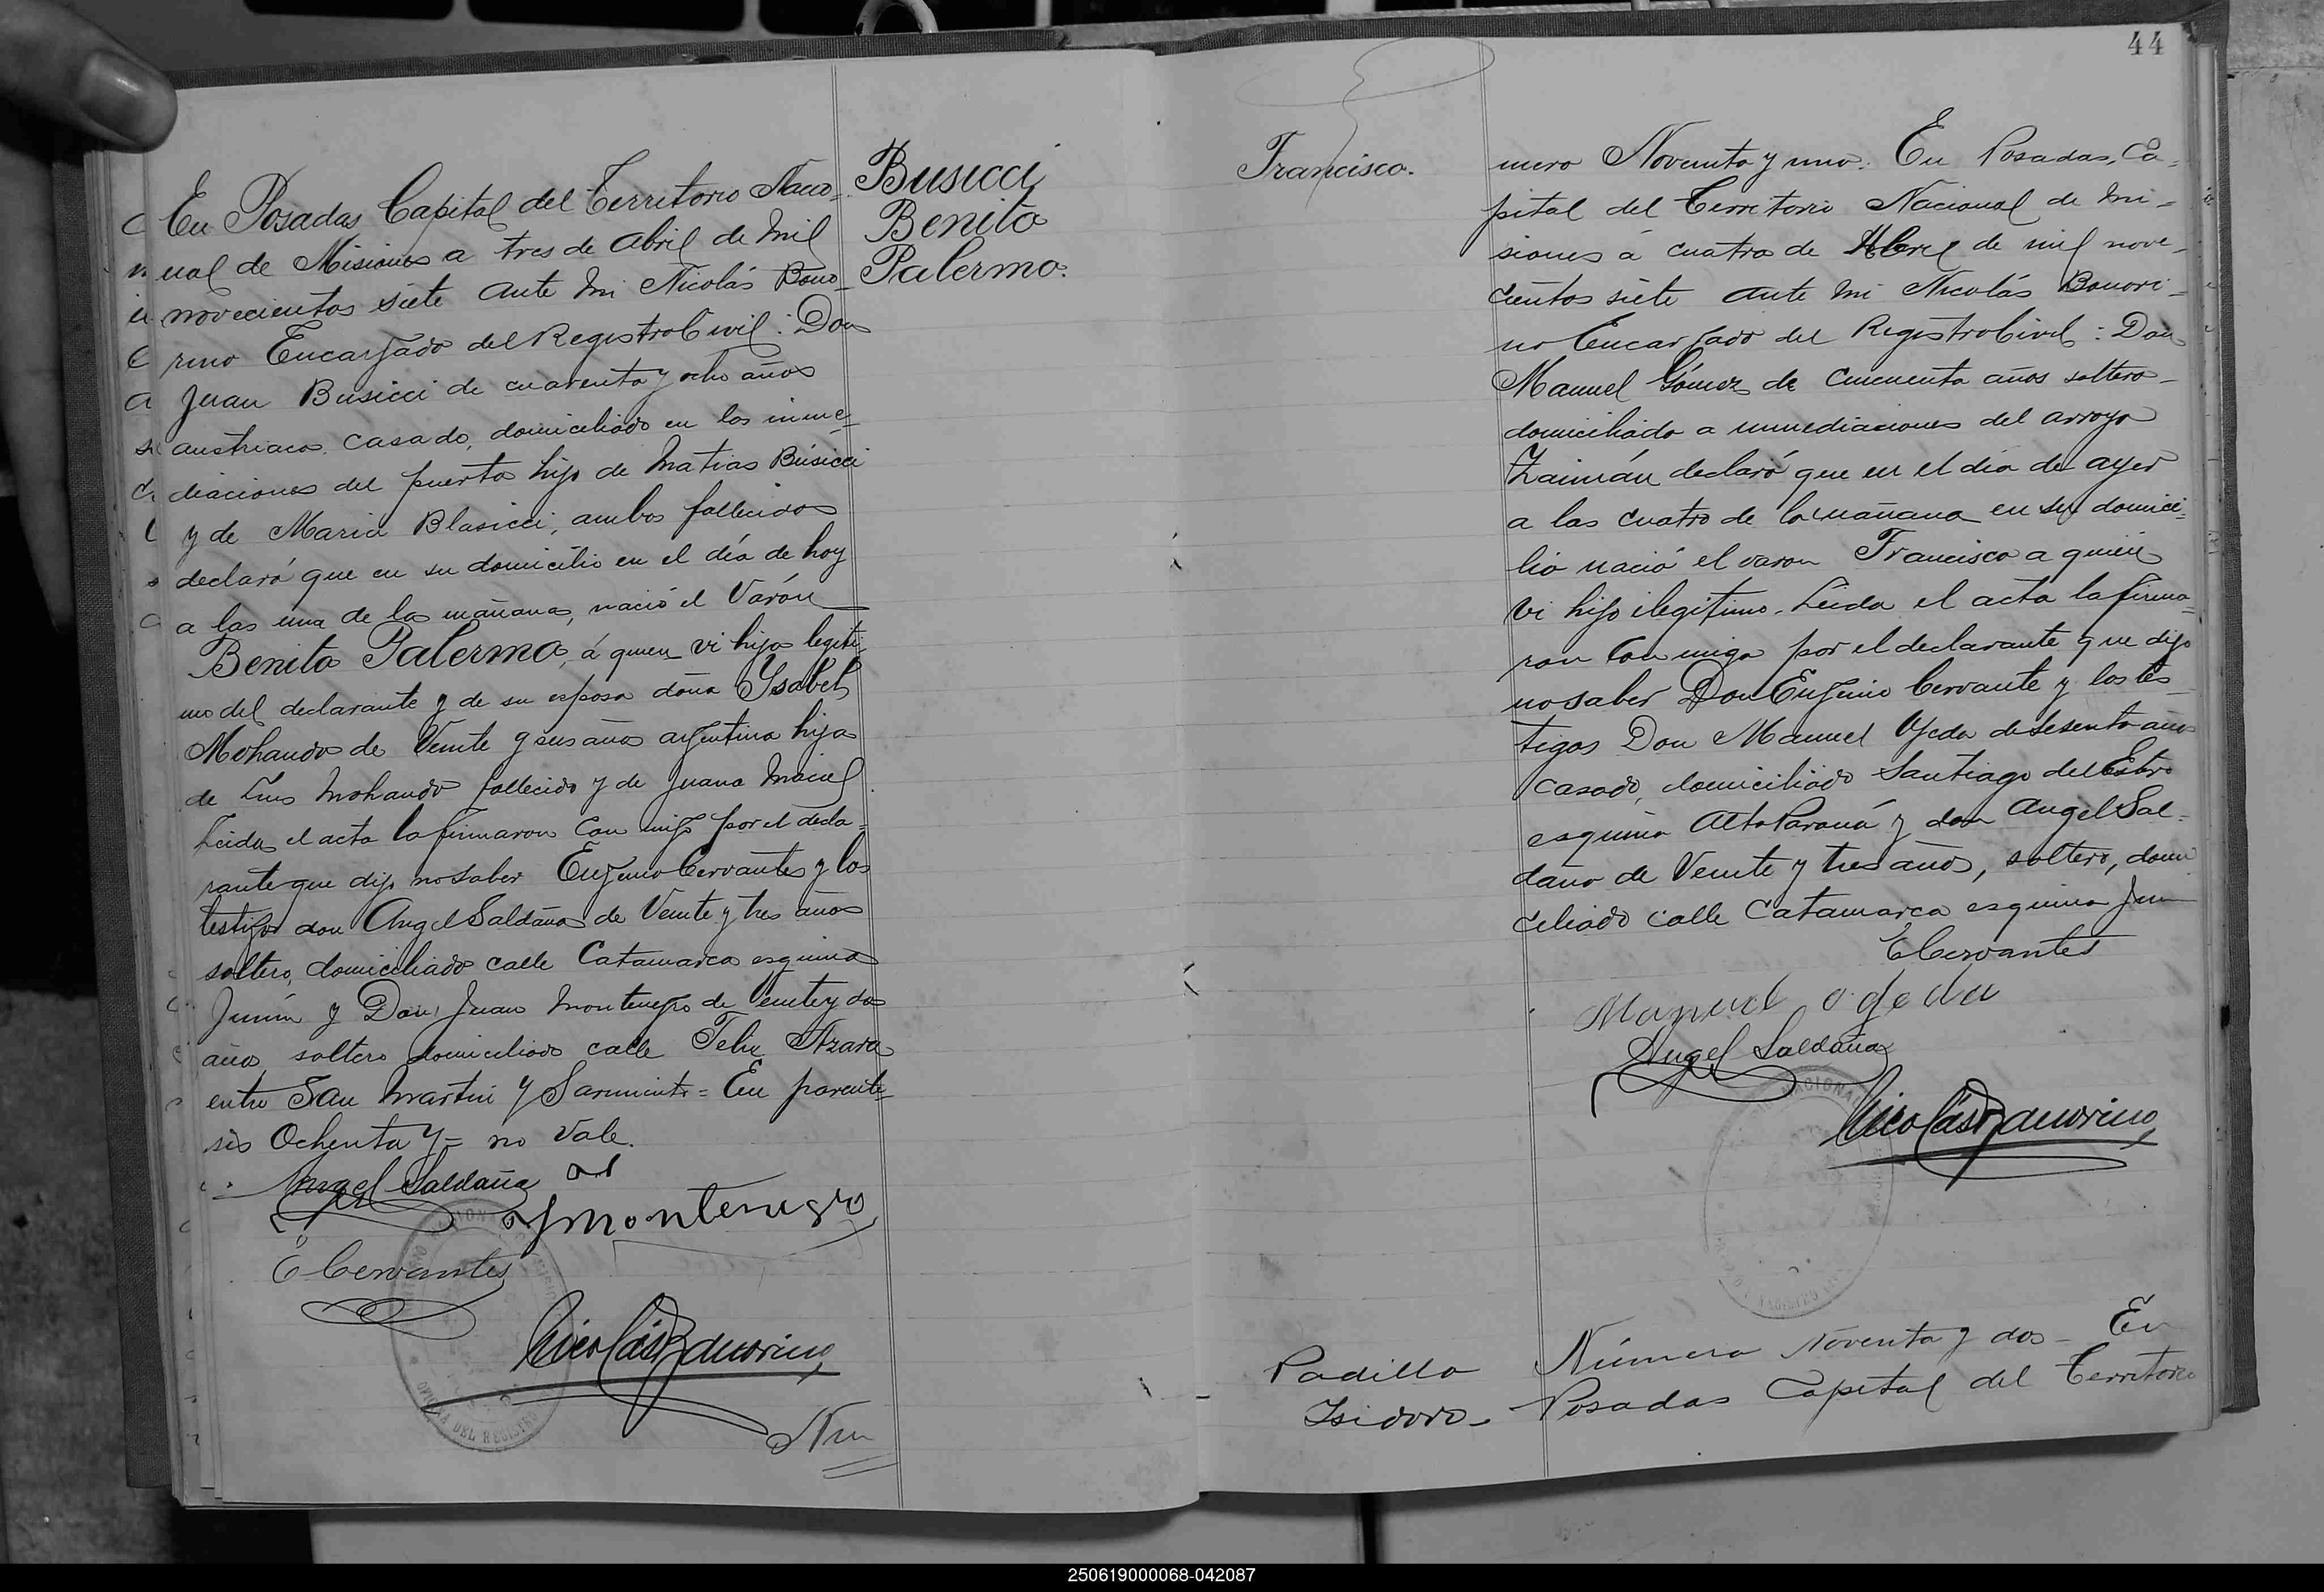 En Posadas Capital del Territorio Nacio-
nal de Misiones a tres de Abril de mil
novecientos siete ante mi Nicolás Bono-
rino Encargado del Registro Civil: Don
Juan Busicci de cuarenta y ocho años
austriaco casado, domiciliado en las inme-
diaciones del puerto hijo de Matias Busicci
y de Maria Blasicci, ambos fallecidos
declaró que en su domicilio en el día de hoy
a las una de la mañana, nació el Varón
Benito Palermo, á quien vi hijo legíti-
mo del declarante y de su esposa doña Ysabel
Mohando de Veinte y seis años argentina hija
de Luis Mohando fallecido y de Juana Maciel
Leida el acta la firmaron con migo por el decla-
rante que dijo no saber Eugenio Cervantes y los
testigos don Angel Saldaña de Veinte y tres años
soltero, domiciliado calle Catamarca esquina
Junín y Don Juan Montenegro de Veinte y dos
años soltero domiciliado calle Felix Azara
entre San Martin y Sarmiento = En parente-
sis Ochenta y = no Vale.
Angel Saldaña
Montenegro
E Cervantes
Nicolás Bonorino
Nú
Busicci
Benito
Palermo.
44
Francisco.
mero Noventa y uno. En Posadas, Ca-
pital del Territorio Nacional de Mi-
siones á cuatro de Abril de mil nove-
cientos siete ante mi Nicolás Bonori-
no Encargado del Registro Civil: Don
Manuel Gómez de Cincuenta años soltero-
domiciliado a inmediaciones del arroyo
Zaimán declaró que en el día de ayer
a las cuatro de la mañana en su domici-
lio nació el varon Francisco a quien
vi hijo ilegítimo. Leida el acta la firma-
ron con migo por el declarante que dijo
no saber Don Eugenio Cervante y los tes-
tigos Don Manuel Ojeda de sesenta años
casado, domiciliado Santiago del Estero
esquina Alto Paraná y don Angel Sal-
daña de Veinte y tres años, soltero, domi
ciliado calle Catamarca esquina Jun
E Cervantes
Manuel ogeda
Angel Saldaña
Nicolás Bonorino
Padilla
Isidoro-
Número Noventa y dos - En
Posadas Capital del Territorio
250619000068-042087